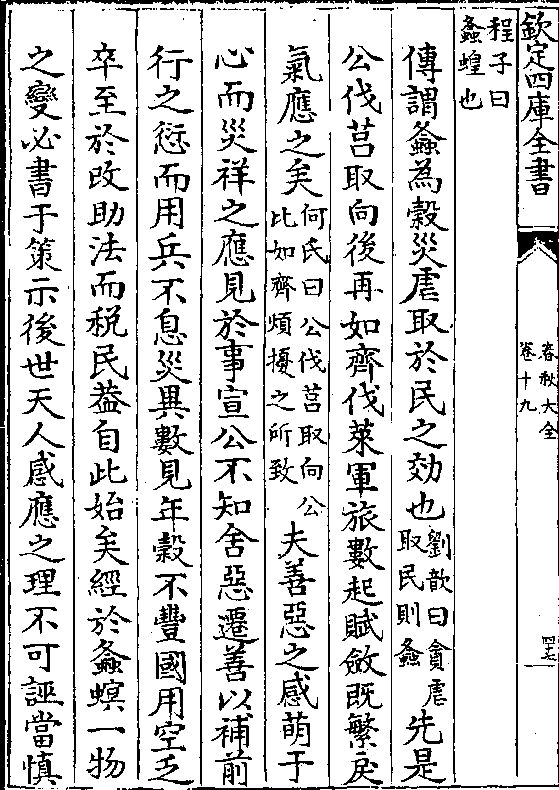 欽定四庫全書
春秋大全
卷十九
四七
程子曰
螽蝗也
傳謂螽為穀災虐取於民之効也劉歆曰貪虐取民則螽先是
公伐莒取向後再如齊伐萊軍旅數起賦斂既繁戾
氣應之矣何氏曰公伐莒取向公比如齊煩擾之所致夫善惡之感萌于
心而災祥之應見於事宣公不知舍惡遷善以補前
行之愆而用兵不息災異數見年穀不豐國用空乏
卒至於改助法而稅民葢自此始矣經於螽螟一物
之變必書于策示後世天人感應之理不可誣當慎